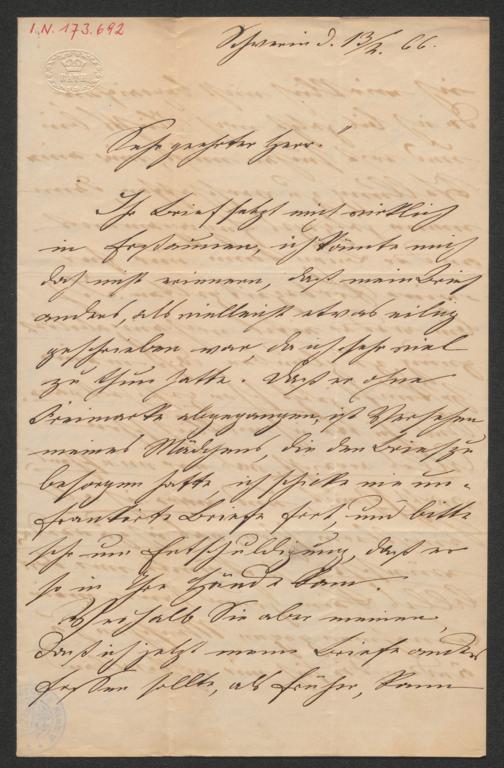 I.N. 173.692
BATH
Schwerin d. 13/2. 66.
Sehr geehrter Herr!
Ihr Brief setzt mich wirklich
in Erstaunen, ich könnte mich
doch nicht erinnern, daß mein Brief
anders, als vielleicht etwas eilig
geschrieben war, da ich sehr viel
zu thun hatte. Daß er ohne
Freimarke abgegangen, ist Versehen
meines Mädchens, die den Brief zu
besorgen hatte, ich schicke nie un-
frankirte Briefe fort, und bitte
sehr um Entschuldigung, daß er
so in Ihre Hände kam.
Weshalb Sie aber meinen,
daß ich jetzt meine Briefe anders
fassen sollte, als früher, kann